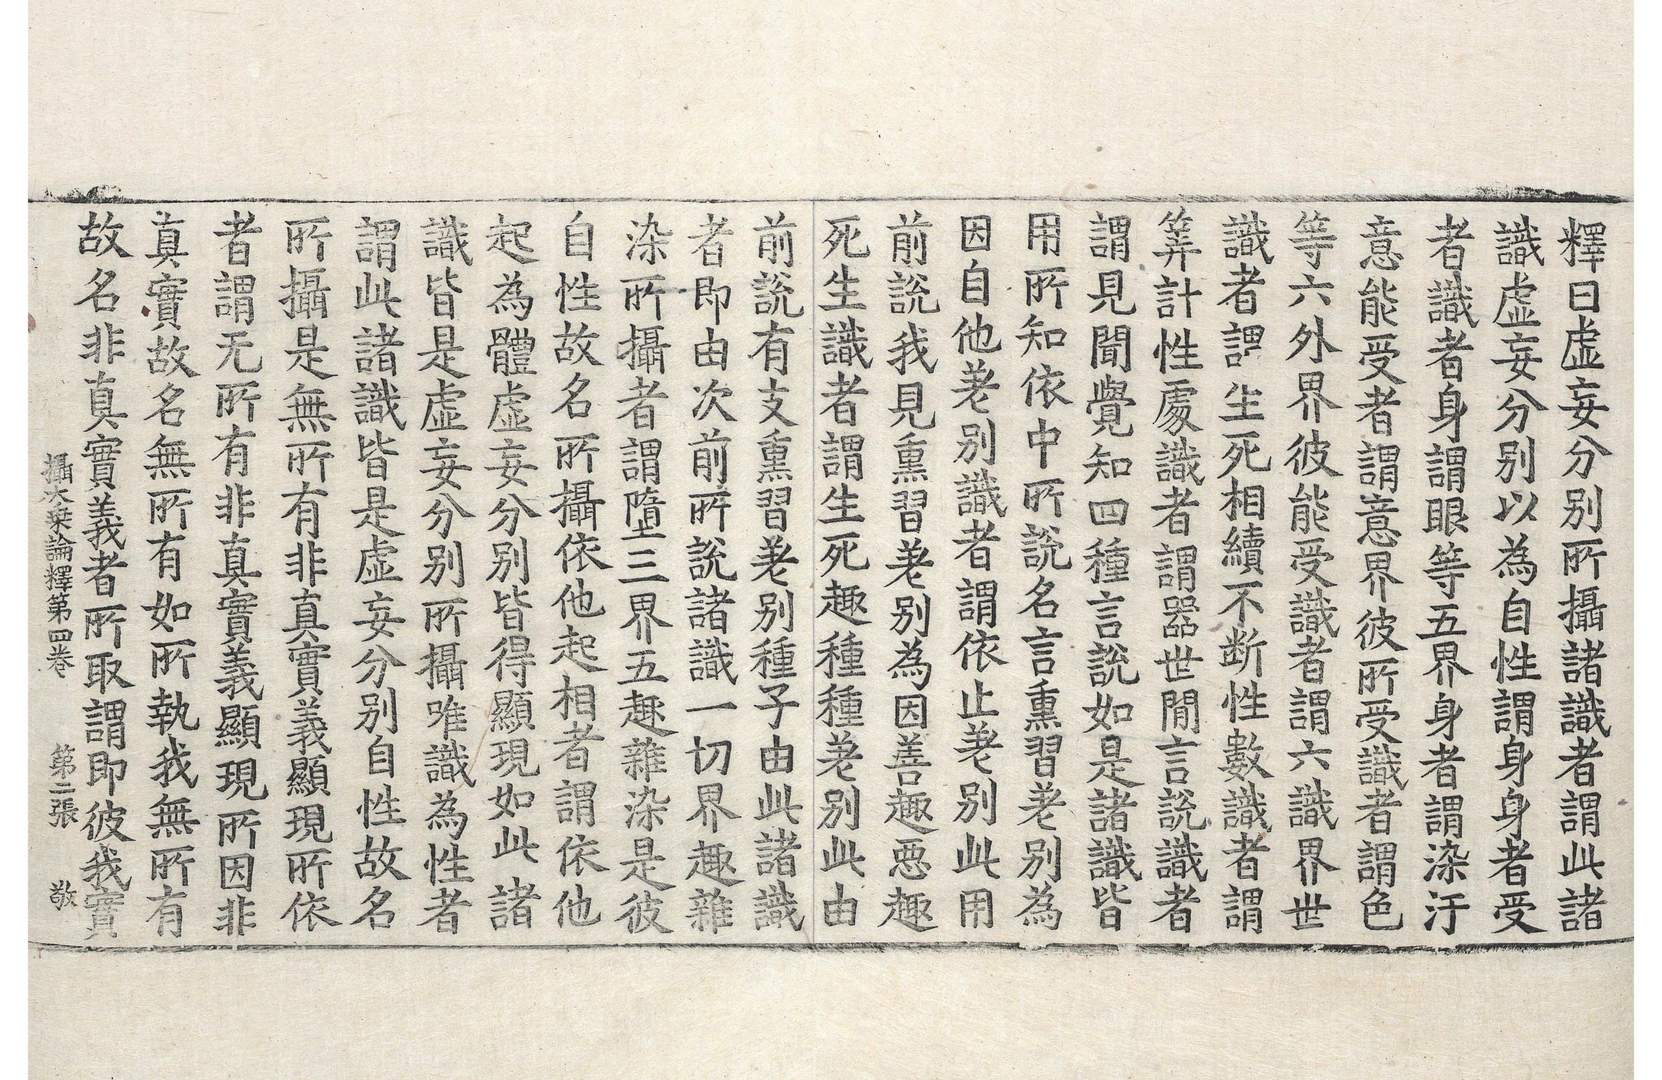 釋曰虛妄分別所攝諸識者謂此諸
識虛妄分別以為自性謂身身者受
者識者身謂眼等五界身者謂染汙
意能受者謂意界彼所受識者謂色
等六外界彼能受識者謂六識界世
識者謂生死相續不斷性數識者謂
筭計性處識者謂器世間言說識者
謂見聞覺知四種言說如是諸識皆
用所知依中所說名言熏習差別為
因自他差別識者謂依止差別此用
前說我見熏習差別為因善趣惡趣
死生識者謂生死趣種種差別此由
前說有支熏習差別種子由此諸識
者即由次前所說諸識一切界趣雜
染所攝者謂墮三界五趣雜染是彼
自性故名所攝依他起相者謂依他
起為體虛妄分別皆得顯現如此諸
識皆是虛妄分別所攝唯識為性者
謂此諸識皆是虛妄分別自性故名
所攝是無所有非真實義顯現所依
者謂无所有非真實義顯現所因非
真實故名無所有如所執我無所有
故名非真實義者所取謂即彼我實
攝大乗論釋第四卷 第二張 敬